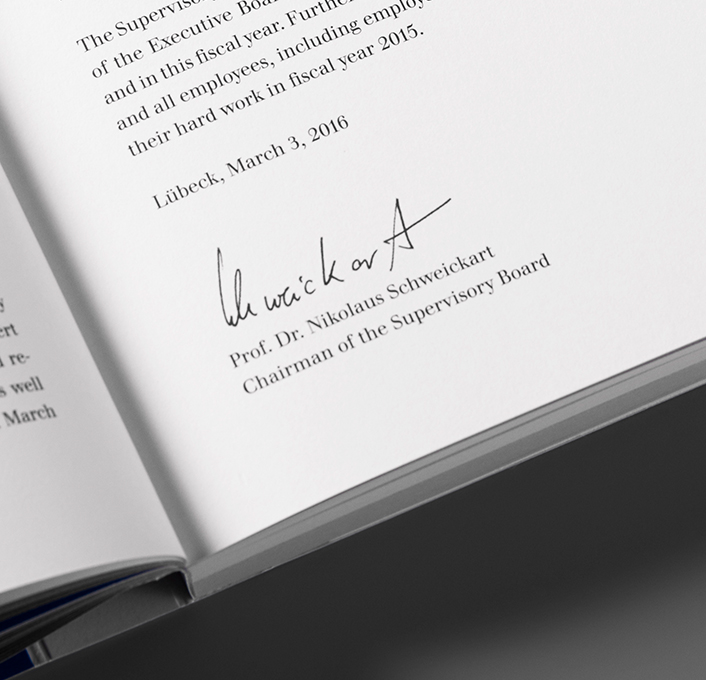 ert
re-
s well
March
The Supervisory
of the Executive Boar
and in this fiscal year. Further
and all employees, including employ
their hard work in fiscal year 2015.
Lübeck, March 3, 2016
Schweickart
Prof. Dr. Nikolaus Schweickart
Chairman of the Supervisory Board